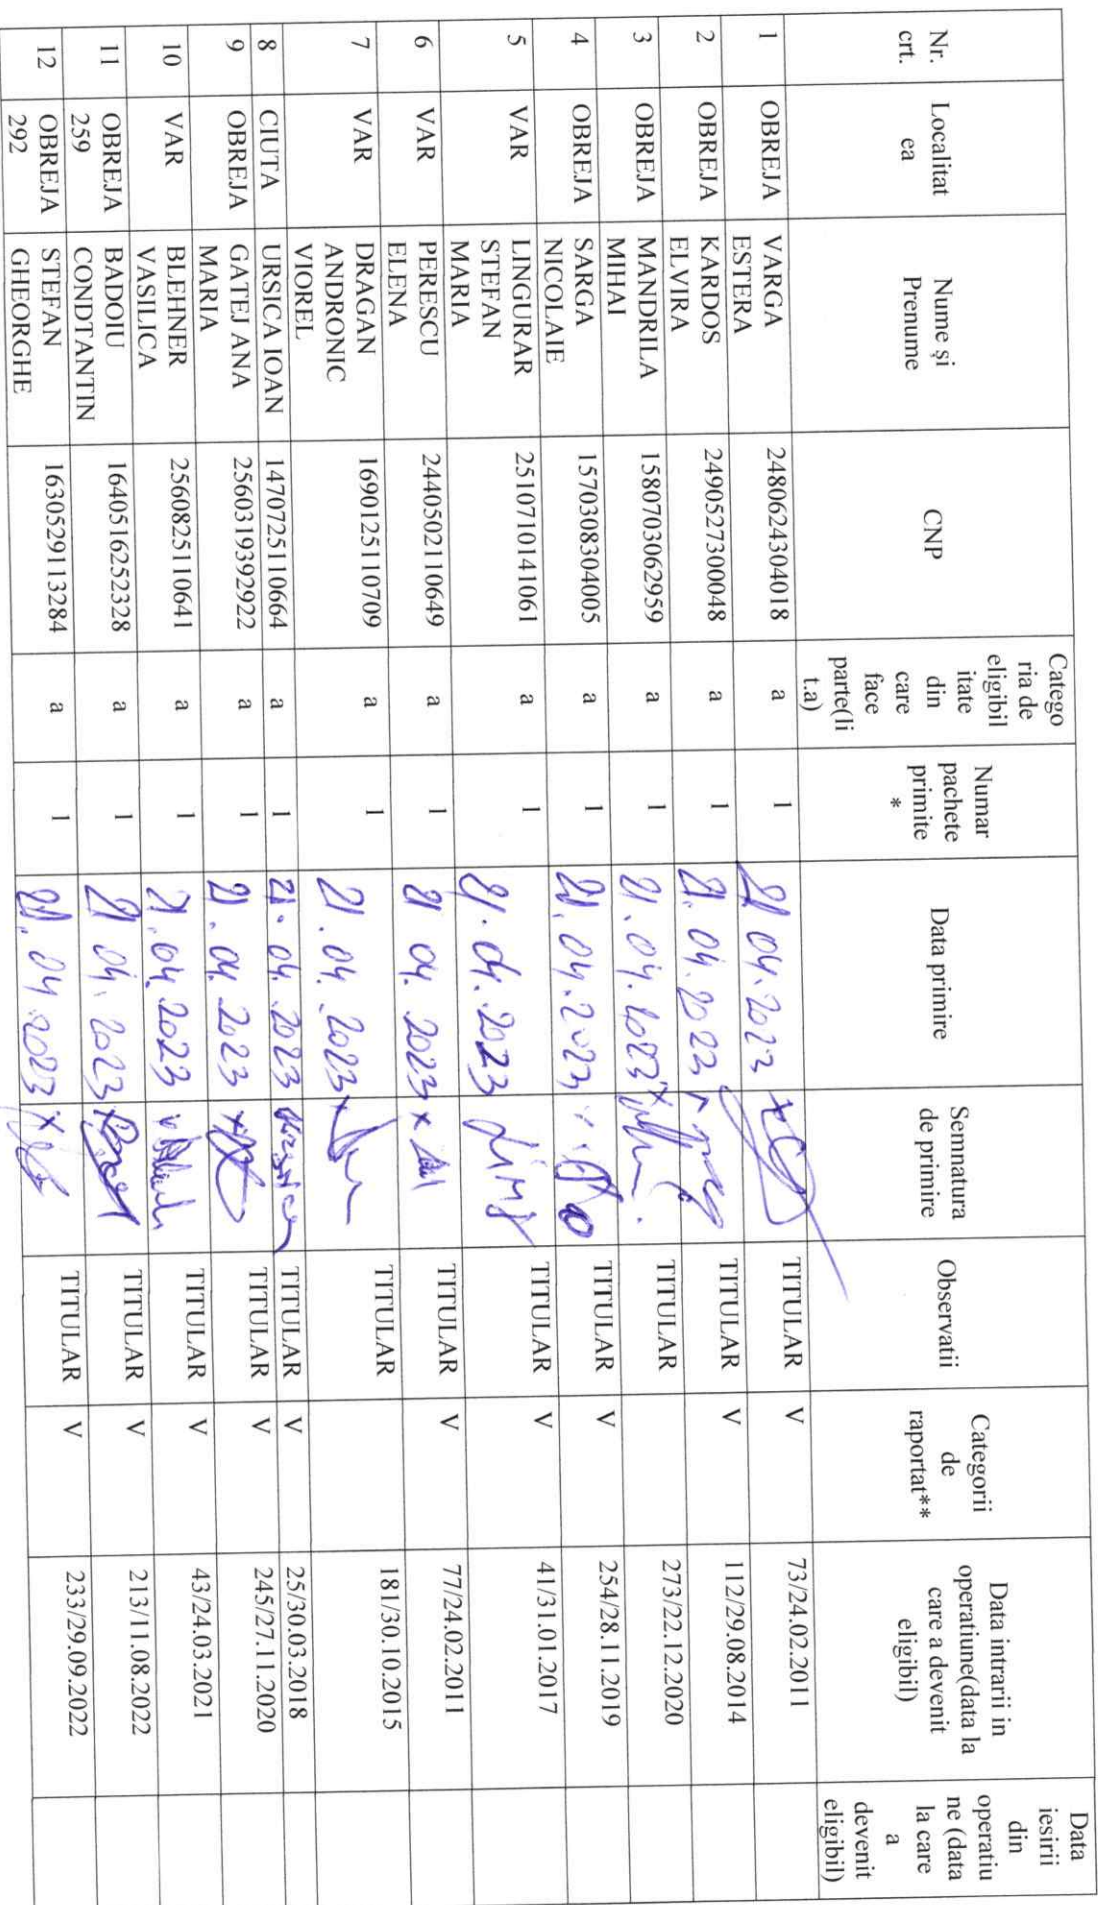 Nr. crt. Localitat ea Nume și Prenume CNP Catego ria de eligibil itate din care face parte(li t.a) Numar pachete primite * Data primire Semnatura de primire Observatii Categorii de raportat** Data intrarii in operatiune(data la care a devenit eligibil) Data iesirii din operatiu ne (data la care a devenit eligibil)
1 OBREJA VARGA ESTERA 2480624304018 a 1 21 04.2023 TITULAR V 73/24.02.2011
2 OBREJA KARDOS ELVIRA 2490527300048 a 1 21.04.2023 TITULAR V 112/29.08.2014
3 OBREJA MANDRILA MIHAI 1580703062959 a 1 21.04.2023 TITULAR 273/22.12.2020
4 OBREJA SARGA NICOLAIE 1570308304005 a 1 21.04.2023 TITULAR V 254/28.11.2019
5 VAR LINGURAR STEFAN MARIA 2510710141061 a 1 21.04.2023 TITULAR V 41/31.01.2017
6 VAR PERESCU ELENA 2440502110649 a 1 21 04. 2023 x TITULAR V 77/24.02.2011
7 VAR DRAGAN ANDRONIC VIOREL 1690125110709 a 1 21.04.2023 x TITULAR 181/30.10.2015
8 CIUTA URSICA IOAN 1470725110664 a 1 21.04.2023 TITULAR V 25/30.03.2018
9 OBREJA GATEJ ANA MARIA 2560319392922 a 1 21.04.2023 x TITULAR V 245/27.11.2020
10 VAR BLEHNER VASILICA 2560825110641 a 1 21.04.2023 TITULAR V 43/24.03.2021
11 OBREJA 259 BADOIU CONDTANTIN 1640516252328 a 1 21 04.2023 x TITULAR V 213/11.08.2022
12 OBREJA 292 STEFAN GHEORGHE 1630529113284 a 1 21.04.2023 x TITULAR V 233/29.09.2022